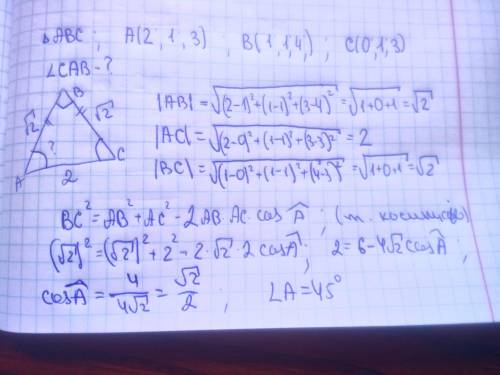 △ABC; A(2,1,3) B(1,1,4); C(0,1,3)
∠CAB-?
B
√2 √2
?
A 2 C
|AB| = √((2-1)²+(1-1)²+(3-4)²) = √(1+0+1) = √2
|AC| = √((2-0)²+(1-1)²+(3-3)²) = 2
|BC| = √((1-0)²+(1-1)²+(4-3)²) = √(1+0+1) = √2
BC² = AB² + AC² - 2AB·AC·cos Â; (т. косинусов)
(√2)² = (√2)² + 2² - 2·√2·2cosÂ; 2=6-4√2cosÂ;
cosÂ = 4/4√2 = √2/2; ∠A=45°